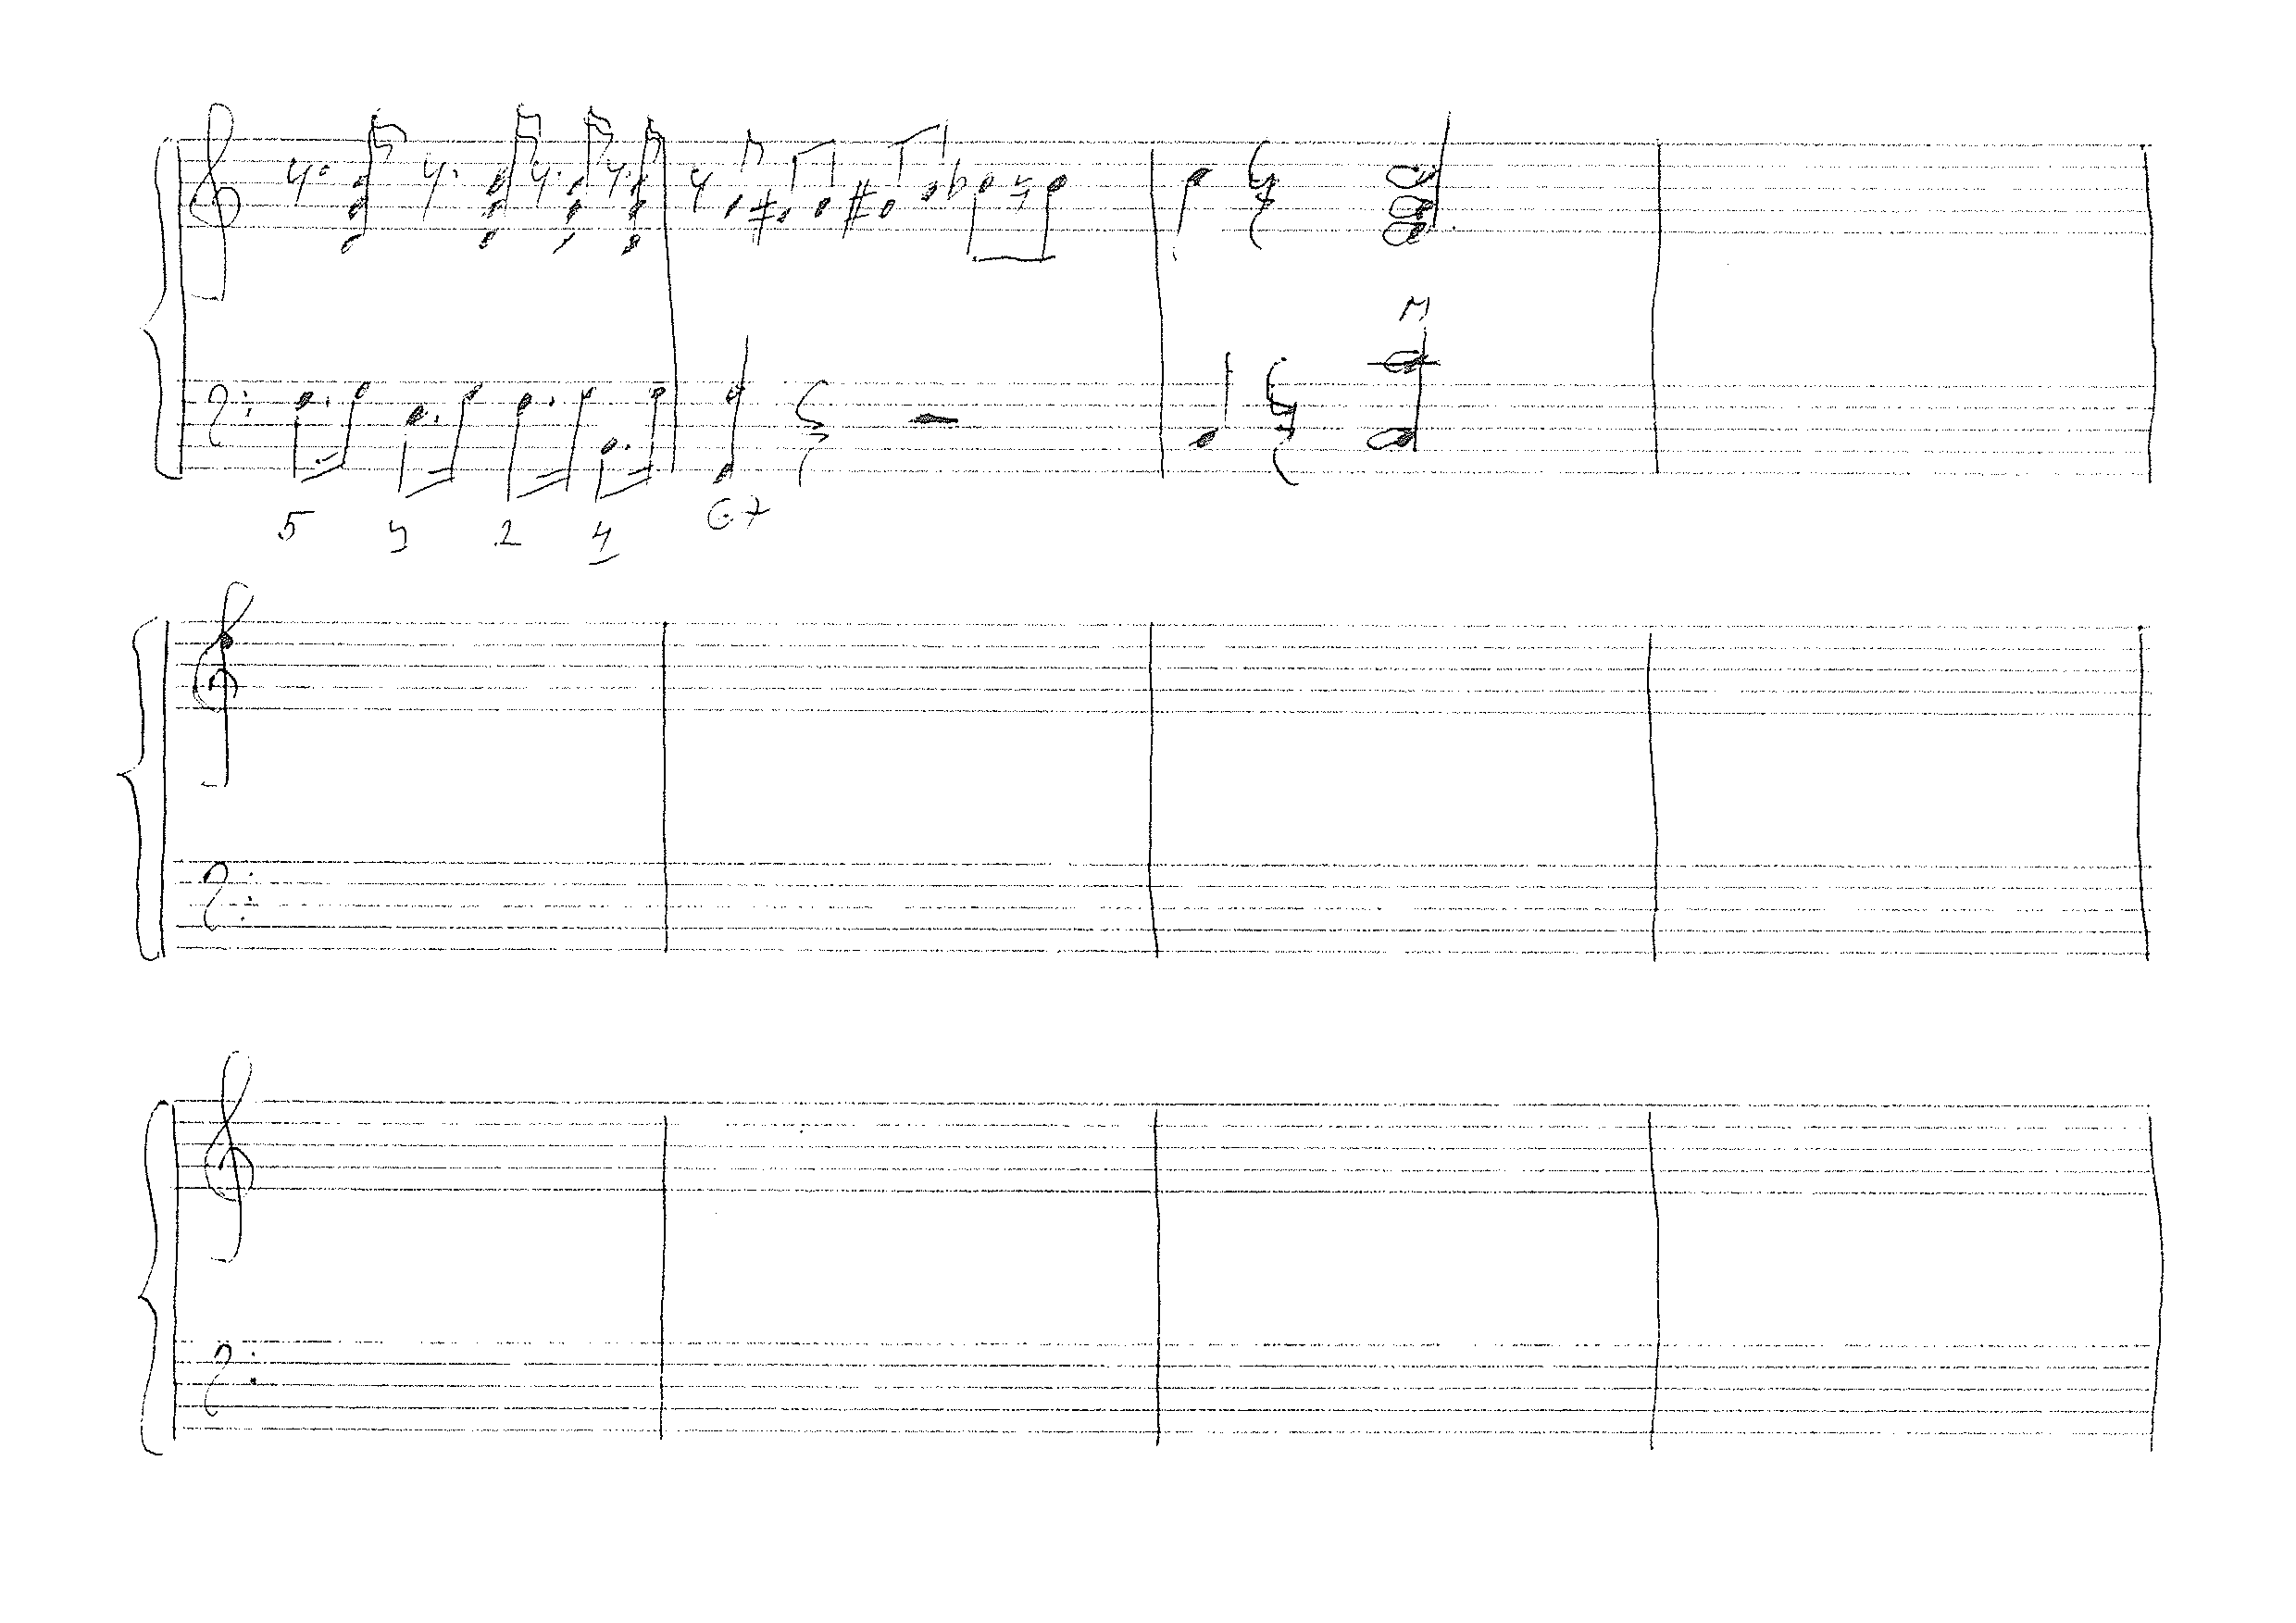 5 4 2 4 G7